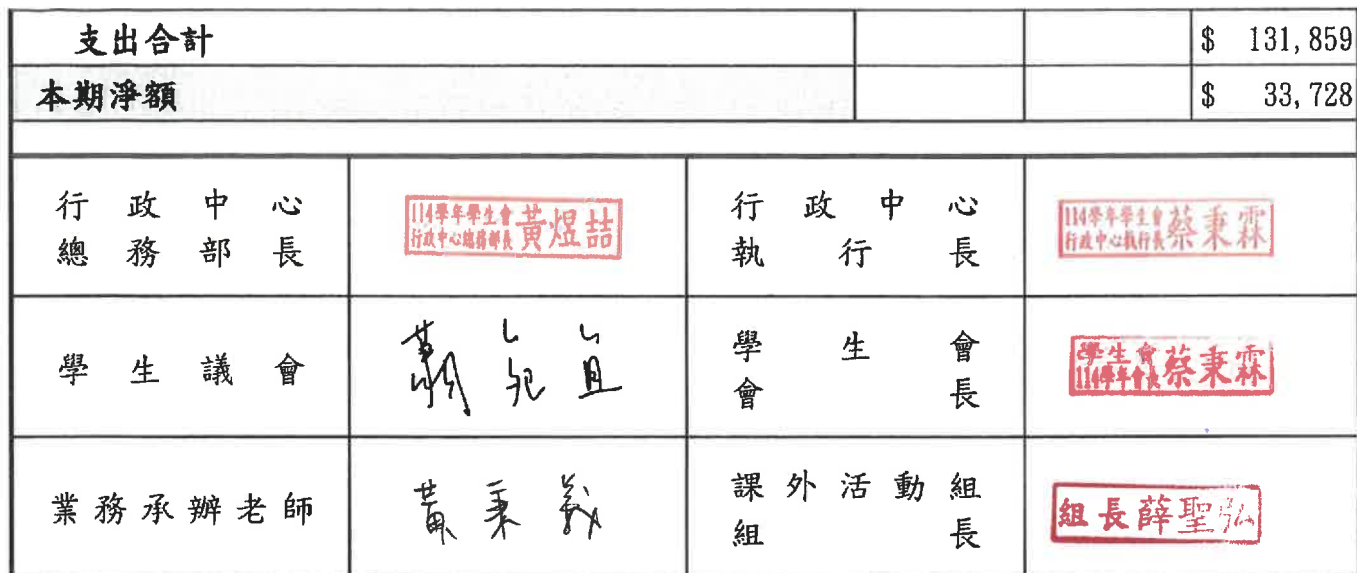 支出合計 $ 131,859
本期淨額 $ 33,728
行政中心
總務部長
114學年學生會
行政中心總務部長
黃煜喆
行政中心
執行長
114學年學生會
行政中心執行長
蔡秉霖
學生議會
宜
學生會
會長
學生會
114學年會長
蔡秉霖
業務承辦老師
黃秉義
課外活動組
組長
組長薛聖弘